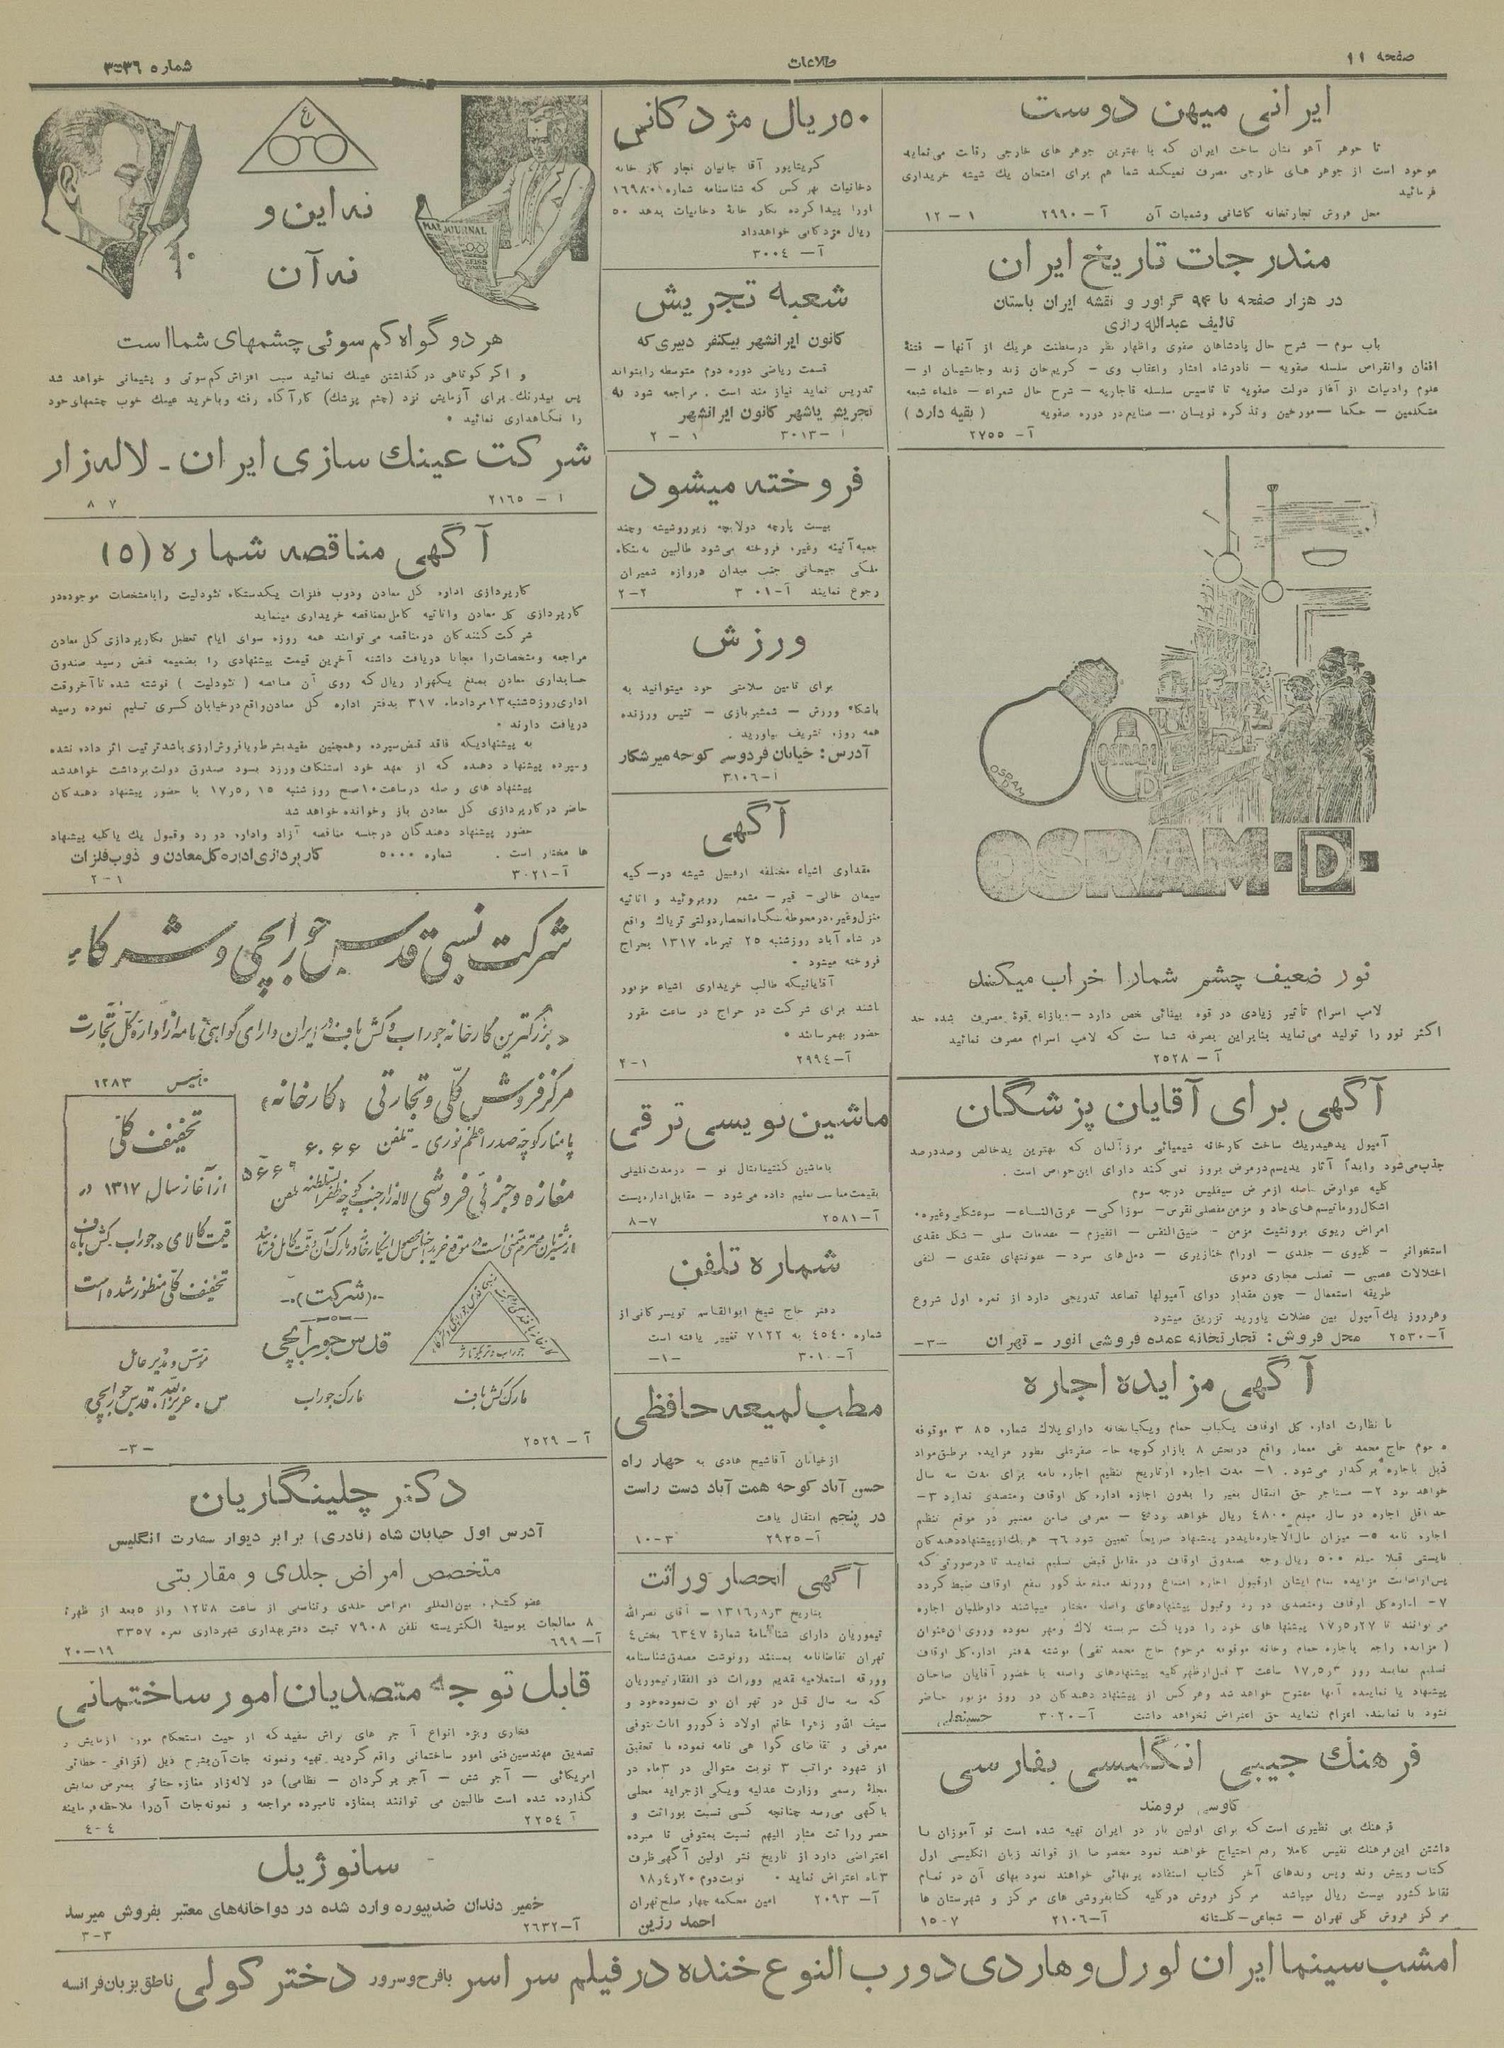 صفحه ۱۱
اطلاعات
شماره ۳۰۳۶
ایرانی میهن دوست
تا جوهر آهو نشان ساخت ایران که با بهترین جوهر های خارجی رقابت می‌نماید
موجود است از جوهر های خارجی مصرف نمیکنند شما هم برای امتحان یك شیشه خریداری
فرمائید
محل فروش تجارتخانه کاشانی وشعبات آن آ-۲۹۹۰ ۱-۱۲
مندرجات تاریخ ایران
در هزار صفحه با ۹۴ گراور و نقشه ایران باستان
تالیف عبدالله رازی
باب سوم — شرح حال پادشاهان صفوی واظهار نظر درسلطنت هریك از آنها — فتنهٔ
افغان وانقراض سلسله صفویه — نادرشاه افشار واعقاب وی — کریم‌خان زند وجانشینان او —
علوم وادبیات از آغاز دولت صفویه تا تاسیس سلسله قاجاریه — شرح حال شعراء — علماء شیعه
متکلمین — حکما — مورخین وتذکره نویسان — صنایع در دوره صفویه (بقیه دارد)
آ- ۲۷۵۵
OSRAM
OSRAM D
OSRAM-D-
نور ضعیف چشم شمارا خراب میکند
لامپ اسرام تأثیر زیادی در قوه بینائی خص دارد — بازاء قوهٔ مصرف شده حد
اکثر نور را تولید می‌نماید بنابراین بصرفه شما ست که لامپ اسرام مصرف نمائید
آ - ۲۵۲۸
آگهی برای آقایان پزشگان
آمپول یدهیدریك ساخت کارخانه شیمیائی مرز آلمان که بهترین یدخالص وصددرصد
جذب می‌شود وابداً آثار یدیسم در مرض بروز نمی کند دارای این خواص است.
کلیه عوارض حاصله از مرض سیفلیس درجه سوم
اشکال روماتیسم‌های حاد و مزمن مفصلی نقرس — سوزاکی — عرق‌النساء — سوءشکلی وغیره.
امراض ریوی برونشیت مزمن — ضیق‌النفس — انفیزم — مقدمات سلی — شکل عقدی
استخوانی - کلیوی — جلدی — اورام خنازیری — دمل‌های سرد — عفونتهای عقدی — لنفی
اختلالات عصبی — تصلب مجاری دموی
طریقه استعمال — چون مقدار دوای آمپولها تصاعد تدریجی دارد از نمره اول شروع
وهرروز یك آمپول بین عضلات یاورید تزریق میشود
آ-۲۵۳۰ محل فروش: تجارتخانه عمده فروشی انور - تهران -۳-
آگهی مزایده اجاره
با نظارت اداره کل اوقاف یکباب حمام ویکبابخانه دارای پلاك شماره ۳۸۵ موقوفه
مرحوم حاج محمد تقی معمار واقع در بخش ۸ بازار کوچه بطور مزایده برطبق مواد
ذیل باجاره برگذار می‌شود. ۱- مدت اجاره از تاریخ تنظیم اجاره نامه برای مدت سه سال
خواهد بود ۲- مستأجر حق انتقال بغیر را بدون اجازه اداره کل اوقاف ومتصدی ندارد ۳-
حداقل اجاره در سال مبلغ ۴۸۰۰ ریال خواهد بود ۴- معرفی ضامن معتبر در موقع تنظیم
اجاره نامه ۵- میزان مال‌الاجاره باید در پیشنهاد صریحاً تعیین شود ۶- هریك از پیشنهاددهندگان
بایستی قبلا مبلغ ۵۰۰ ریال وجه بصندوق اوقاف در مقابل قبض تسلیم نمایند تا درصورتی که
پس از خاتمت مزایده بنام ایشان از قبول اجاره امتناع ورزند مبلغ مذکور بنفع اوقاف ضبط گردد
۷- اداره کل اوقاف ومتصدی در رد وقبول پیشنهادهای واصله مختار میباشند داوطلبان اجاره
می‌توانند تا ۱۷ر۵ر۲۷ پیشنهادهای خود را درپاکت سربسته لاك ومهر نموده وروی آن عنوان
(مزایده راجع باجاره حمام وخانه موقوفه مرحوم حاج محمد تقی) نوشته بدفتر اداره کل اوقاف
تسلیم نمایند روز ۱۷ر۵ر۳ ساعت ۳ قبل‌ازظهر کلیه پیشنهادهای واصله با حضور آقایان صاحبان
پیشنهاد یا نماینده آنها مفتوح خواهد شد وهرکس از پیشنهاد دهندگان در روز مزبور حاضر
نشود یا نماینده اعزام ننماید حق اعتراض نخواهد داشت آ-۳۰۲۰
فرهنك جیبی انگلیسی بفارسی
کاوسی برومند
فرهنك بی نظیری است که برای اولین بار در ایران تهیه شده است نو آموزان با
داشتن این فرهنك نفیس کاملا رفع احتیاج خواهند نمود مخصوصا از فوائد زبان انگلیسی اول
کتاب وپیش وند وپس وندهای آخر کتاب استفاده بی‌نهائی خواهند نمود بهای آن در تمام
نقاط کشور بیست ریال میباشد مرکز فروش در کلیه کتابفروشی های مرکز و شهرستان ها
مرکز فروش کلی تهران — شجاعی — گلستانه آ-۲۱۰۶ ۷-۱۵
۵۰ ریال مژدگانی
کریتاپور آقا جانیان نجار کار خانه
دخانیات هرکس که شناسنامه شماره ۱۶۹۸۰
اورا پیدا کرده بکار خانهٔ دخانیات بدهد ۵۰
ریال مژدگانی خواهدداد
آ- ۳۰۰۴
شعبه تجریش
کانون ایرانشهر بیکنفر دبیری که
قسمت ریاضی دوره دوم متوسطه رابتواند
تدریس نماید نیاز مند است. مراجعه شود به
تجریش یاشهر کانون ایرانشهر
آ-۳۰۱۳ ۱-۲
فروخته میشود
بیست پارچه دولابچه زیرروشیشه وچند
جعبه آئینه وغیره فروخته می‌شود طالبین به بنگاه
ملکی جیحانی جنب میدان دروازه شمیران
رجوع نمایند آ-۳۰۱ ۲-۲
ورزش
برای تامین سلامتی خود میتوانید به
باشگاه ورزش — شمشیربازی — تنیس ورزنده
همه روزه تشریف بیاورید.
آدرس: خیابان فردوسی کوچه میرشکار
آ-۳۱۰۶
آگهی
مقداری اشیاء مختلفه ازقبیل شیشه در — کیه
سیمان خالی — قیر — مشمع روبروئید و اثاثیه
منزل وغیره در محوطه بنگاه انحصار دولتی تریاك واقع
در شاه آباد روزشنبه ۲۵ تیرماه ۱۳۱۷ بحراج
فروخته میشود.
آقایانیکه طالب خریداری اشیاء مزبور
باشند برای شرکت در حراج در ساعت مقرر
حضور بهمرسانند.
آ-۲۹۹۴ ۱-۲
ماشین نویسی ترقی
باماشین کنتیننتال نو — درمدت قلیلی
بقیمت مناسب تعلیم داده می‌شود — مقابل اداره پست
آ-۲۵۸۱ ۷-۸
شماره تلفن
دفتر حاج شیخ ابوالقاسم تویسرکانی از
شماره ۴۵۴۰ به ۷۱۲۲ تغییر یافته است
آ-۳۰۱۰ -۱-
مطب لمیعه حافظی
از خیابان آقاشیخ هادی به چهار راه
حسن آباد کوچه همت آباد دست راست
در پنجم انتقال یافت
آ-۲۹۲۵ ۳-۱۰
آگهی انحصار وراثت
بتاریخ ۱۳۱۶ر۸ر۳ — آقای نصرالله
تیموریان دارای شناسنامهٔ شماره ۶۳۴۷ بخش ۴
تهران تقاضانامه بمستند رونوشت مصدق شناسنامه
وورقه استعلامیه قدیم وورات ذوالفقار تیموریان
که سه سال قبل در تهران فوت نموده خود و
سیف الله و زهرا خانم اولاد ذکورو اناث متوفی
معرفی و تقاضای گواهی نامه نموده با تحقیق
از شهود مراتب ۳ نوبت متوالی در ۳ماه در
مجلهٔ رسمی وزارت عدلیه ویکی ازجراید محلی
باگهی می‌رسد چنانچه کسی نسبت بوراثت و
حصر وراثت مشار الیهم نسبت بمتوفی نا مبرده
اعتراضی دارد از تاریخ نشر اولین آگهی ظرف
۳ماه اعتراض نماید. نوبت دوم ۲۰ر۴ر۱۸
آ- ۲۰۹۳ امین محکمه چهار صلح تهران
احمد رزین
نه این و
نه آن
ع
JOURNAL
هر دو گواه کم سوئی چشمهای شما است
و اگر کوتاهی در گذاشتن عینك نمائید سبب افزایش کم سوئی و پشیمانی خواهد شد
پس بیدرنگ برای آزمایش نزد (چشم پزشك) کار آگاه رفته وباخرید عینك خوب چشمهای خود
را نگاهداری نمائید.
شرکت عینك سازی ایران - لاله‌زار
آ-۲۱۶۵ ۷ ۸
آگهی مناقصه شماره (۵)
کارپردازی اداره کل معادن وذوب فلزات یکدستگاه تئودلیت رابامشخصات موجوده در
کارپردازی کل معادن واثاثیه کامل بمناقصه خریداری مینماید
شرکت کنندگان در مناقصه می‌توانند همه روزه سوای ایام تعطیل بکارپردازی کل معادن
مراجعه ومشخصات را مجانا دریافت داشته آخرین قیمت پیشنهادی را بضمیمه قبض رسید صندوق
حسابداری معادن بمبلغ یکهزار ریال که روی آن مناقصه (تئودلیت) نوشته شده تا آخر وقت
اداری روز ۵شنبه ۱۳مرداد ماه ۳۱۷ بدفتر اداره کل معادن واقع در خیابان کسری تسلیم نموده رسید
دریافت دارند.
به پیشنهادیکه فاقد قبض سپرده وهمچنین مقید بشرط ویافروش ارزی باشد ترتیب اثر داده نشده
وسپرده پیشنهاد دهنده که از تعهد خود استنکاف ورزد بسود صندوق دولت برداشت خواهد شد
پیشنهاد های واصله در ساعت ۱۰صبح روز شنبه ۱۵ر۵ر۱۷ با حضور پیشنهاد دهندگان
حاضر در کارپردازی کل معادن باز وخوانده خواهد شد
حضور پیشنهاد دهندگان در جلسه مناقصه آزاد واداره در رد وقبول یك یاکلیه پیشنهاد
ها مختار است. شماره ۵۰۰۰ کارپردازی اداره کل معادن و ذوب فلزات
آ-۳۰۲۱ ۱-۲
شرکت نسبی قدس جورابچی و شرکاء
«بزرگترین کارخانه جوراب و کش باف در ایران دارای گواهی نامه از اداره کل تجارت
تاسیس ۱۲۸۳
مرکز فروش کلی و تجارتی «کارخانه»
پامنار کوچه صدراعظم نوری - تلفن ۶۰۶۶
مغازه و جزئی فروشی لاله‌زار جنب کوچه ظفرالسلطنه تلفن ۵۶۶۹
از مشتریان محترم متمنی است در موقع خرید اجناس محصول این کارخانه بمارک آن دقت کامل فرمایند
تخفیف کلی
از آغاز سال ۱۳۱۷ در
قیمت کالای «جوراب کش باف»
تخفیف کلی منظور شده است
-(شرکت)-
قدس جورابچی
مارک جوراب
مارک کش باف
موسس و مدیر عامل
س. عزیزالله قدس جورابچی
آ- ۲۵۲۹ -۳-
دکتر چلینگاریان
آدرس اول خیابان شاه (نادری) برابر دیوار سفارت انگلیس
متخصص امراض جلدی و مقاربتی
عضو کنگره بین‌المللی امراض جلدی وتناسلی از ساعت ۸ تا ۱۲ و از ۵ بعد از ظهر تا
۸ معالجات بوسیلهٔ الکتریسته تلفن ۷۹۰۸ ثبت دفتر بهداری شهرداری نمره ۳۳۵۷
آ-۶۹۹ ۱۹-۲۰
قابل توجه متصدیان امور ساختمانی
فخاری ویژه انواع آجر های تراش سفید که از حیث استحکام مورد آزمایش و
تصدیق مهندسین فنی امور ساختمانی واقع گردید. تهیه ونمونه جات آن بشرح ذیل (قزاقی — خطائی
امریکائی — آجر شش — آجر برگردان — نظامی) در لاله‌زار مغازه حناثر بمعرض نمایش
گذارده شده است طالبین می توانند بمغازه نامبرده مراجعه و نمونه‌جات آن‌را ملاحظه فرمایند
آ ۲۲۵۴ ۴-۴
سانوژیل
خمیر دندان ضدپیوره وارد شده در دواخانه‌های معتبر بفروش میرسد
آ-۲۶۳۲ ۳-۳
امشب سینما ایران لورل و هاردی دو رب النوع خنده در فیلم سراسر بافرح وسرور دختر کولی ناطق بزبان فرانسه